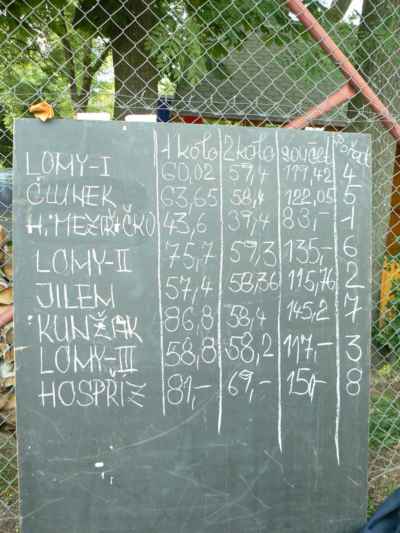 1 kolo 2 kolo součet Pořad
LOMY-I 60,02 59,4 119,42 4
ČLUNEK 63,65 58,4 122,05 5
H. MEZIŘÍČKO 43,6 39,4 83,- 1
LOMY-II 75,7 59,3 135,- 6
JILEM 57,4 58,36 115,76 2
KUNŽAK 86,8 58,4 145,2 7
LOMY-III 58,8 58,2 117,- 3
HOSPŘÍZ 81,- 69,- 150,- 8